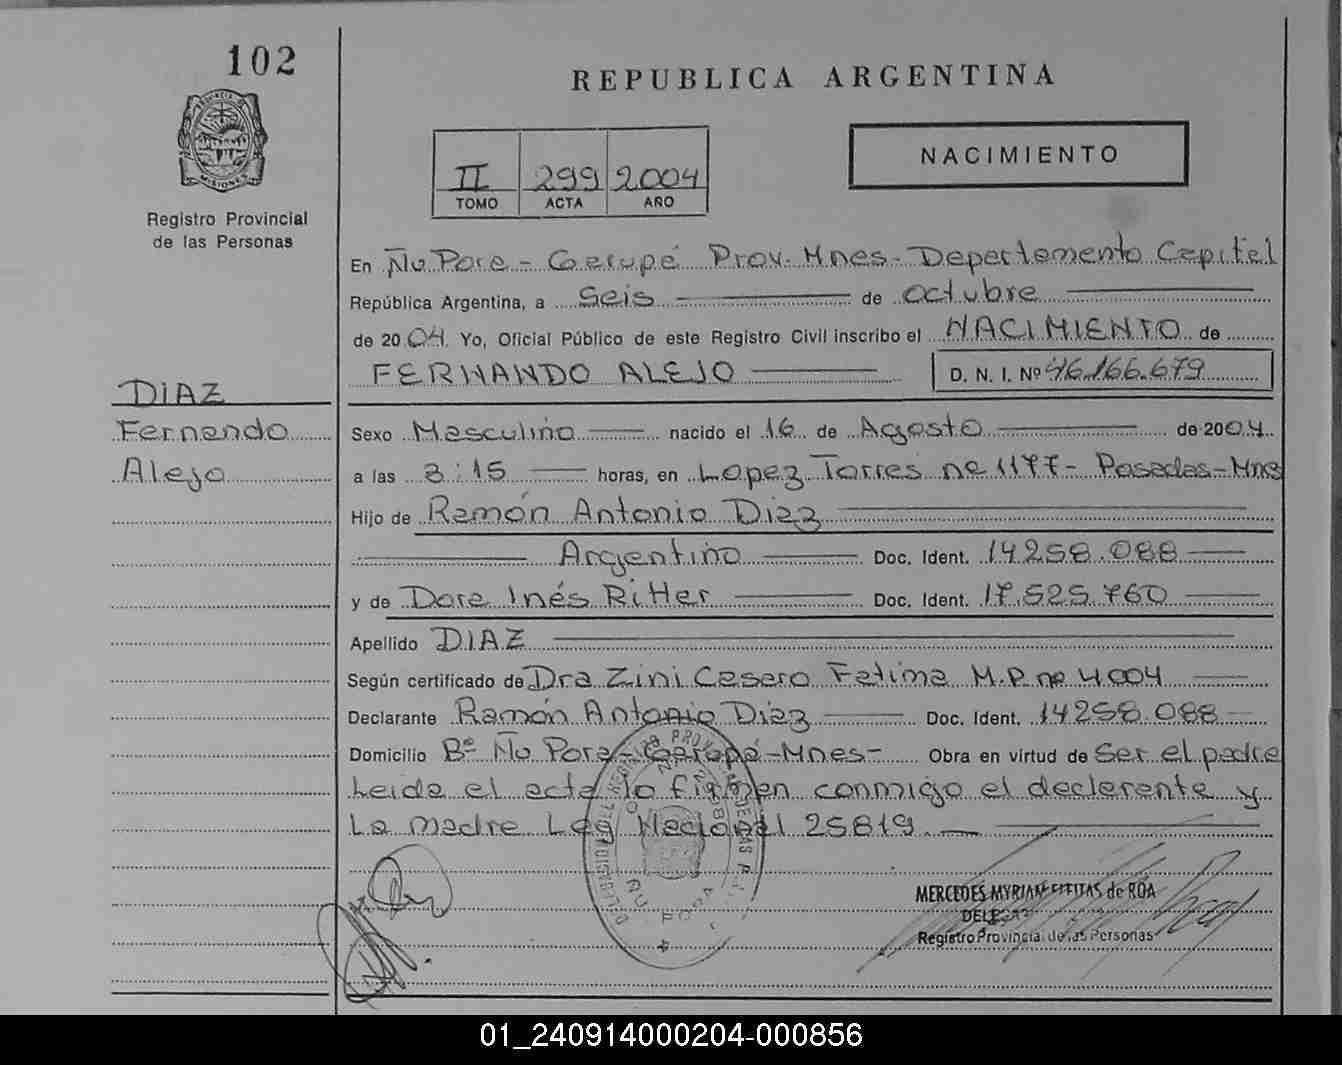 102
REPUBLICA ARGENTINA
PROVINCIA D
MISIONES
Registro Provincial
de las Personas
II 299 2004
TOMO ACTA AÑO
NACIMIENTO
En Ñu Pora - Garupá Prov. Mnes - Departamento Capital
República Argentina, a Seis de octubre
de 2004. Yo, Oficial Público de este Registro Civil inscribo el NACIMIENTO de
FERNANDO ALEJO D. N. I. Nº 46.166.679
DIAZ
Fernando
Alejo
Sexo Masculino nacido el 16 de Agosto de 2004
a las 3:15 horas, en Lopez Torres nº 1177 - Posadas - Mnes
Hijo de Ramón Antonio Diaz
Argentino Doc. Ident. 14258.088
y de Dora Inés Ritter Doc. Ident. 17.525.760
Apellido DIAZ
Según certificado de Dra Zini Casero Fatima M.P. nº 4004
Declarante Ramón Antonio Diaz Doc. Ident. 14258.088
Domicilio Bº Ñu Pora - Garupá - Mnes - Obra en virtud de Ser el padre
Leida el acta la firman conmigo el declarante y
La madre Ley Nacional 25819.
MERCEDES MYRIAM FREITAS de ROA
DELEGADA
Registro Provincial de las Personas
01_240914000204-000856